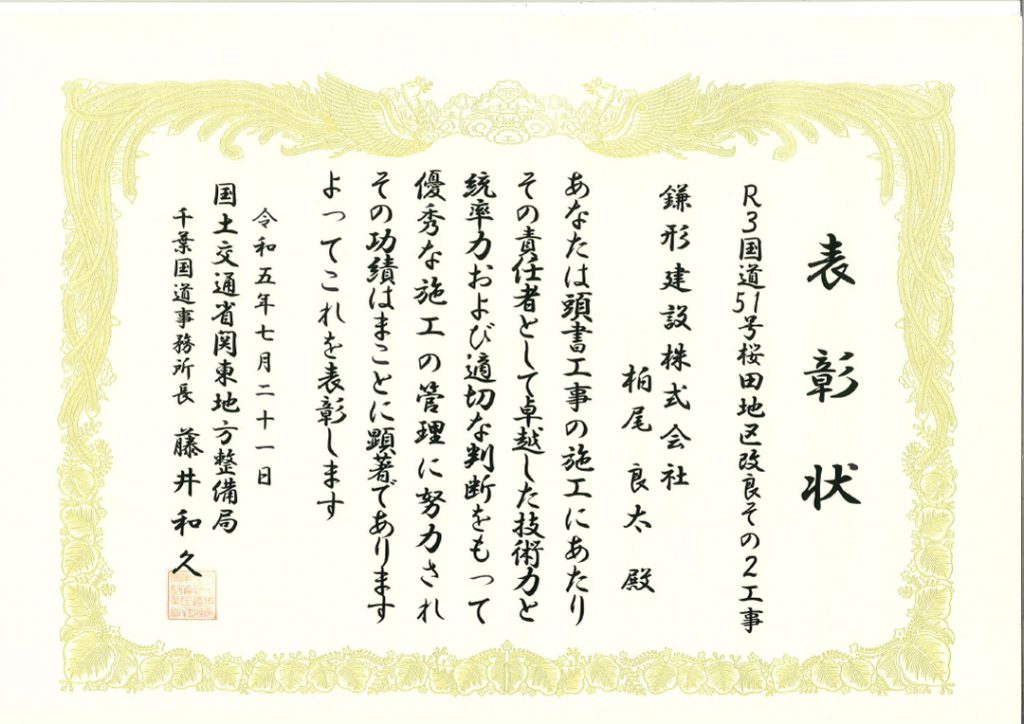 表彰状
R3国道51号桜田地区改良その2工事
鎌形建設株式会社
柏尾 良太 殿
あなたは頭書工事の施工にあたり
その責任者として卓越した技術力と
統率力および適切な判断をもって
優秀な施工の管理に努力され
その功績はまことに顕著であります
よってこれを表彰します
令和五年七月二十一日
国土交通省関東地方整備局
千葉国道事務所長 藤井和久